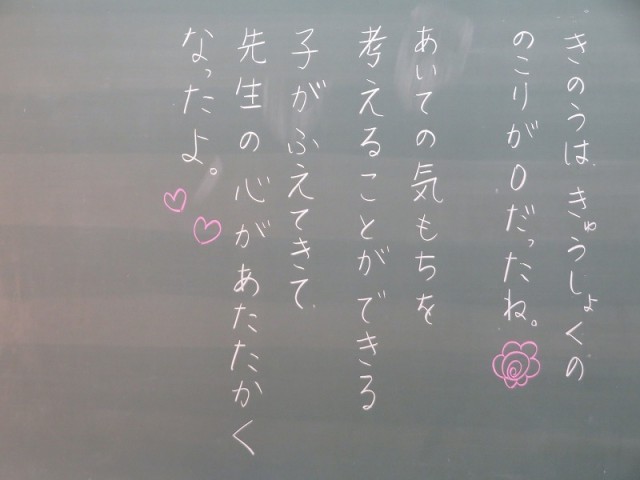 きのうは、きゅうしょくの
のこりが0だったね。
あいての気もちを
考えることができる
子がふえてきて、
先生の心があたたかく
なったよ。